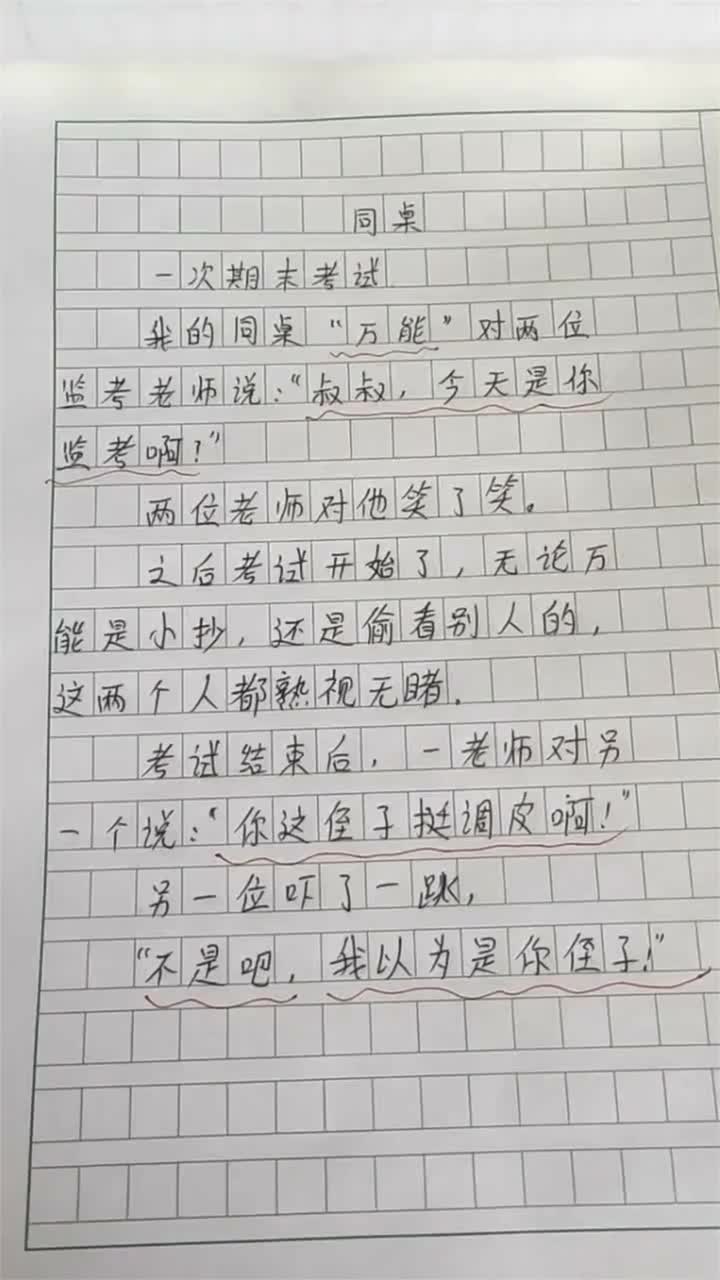 同桌
一次期末考试
我的同桌“万能”对两位
监考老师说:“叔叔,今天是你
监考啊!”
两位老师对他笑了笑。
之后考试开始了,无论万
能是小抄,还是偷看别人的,
这两个人都熟视无睹.
考试结束后,一老师对另
一个说:“你这侄子挺调皮啊!”
另一位吓了一跳,
“不是吧,我以为是你侄子!”